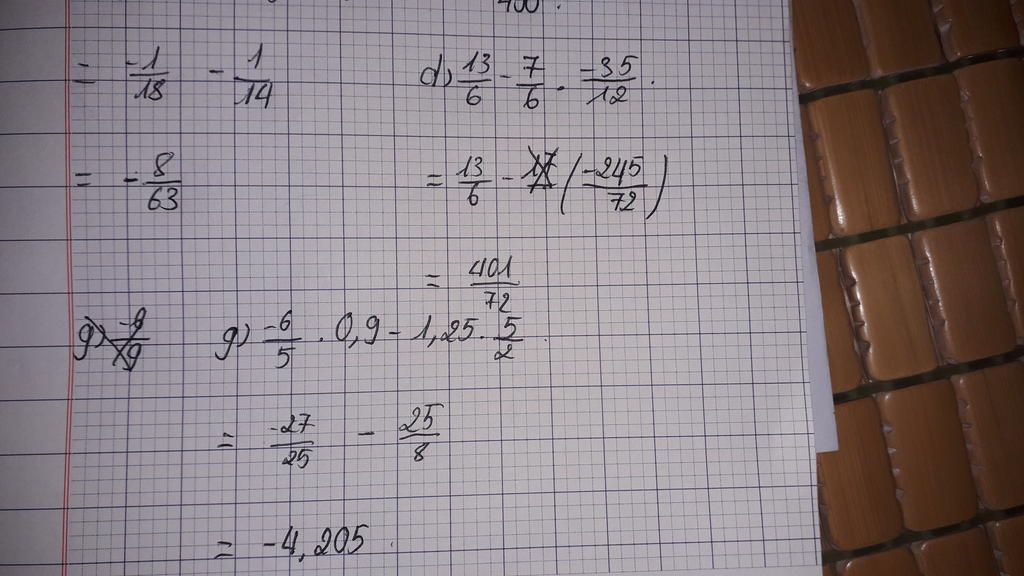 = -1/18 - 1/14
= - 8/63
d) 13/6 - 7/6 . -35/12
= 13/6 - (-245/72)
= 401/72
g) -6/5 . 0,9 - 1,25 . 5/2
= -27/25 - 25/8
= -4,205